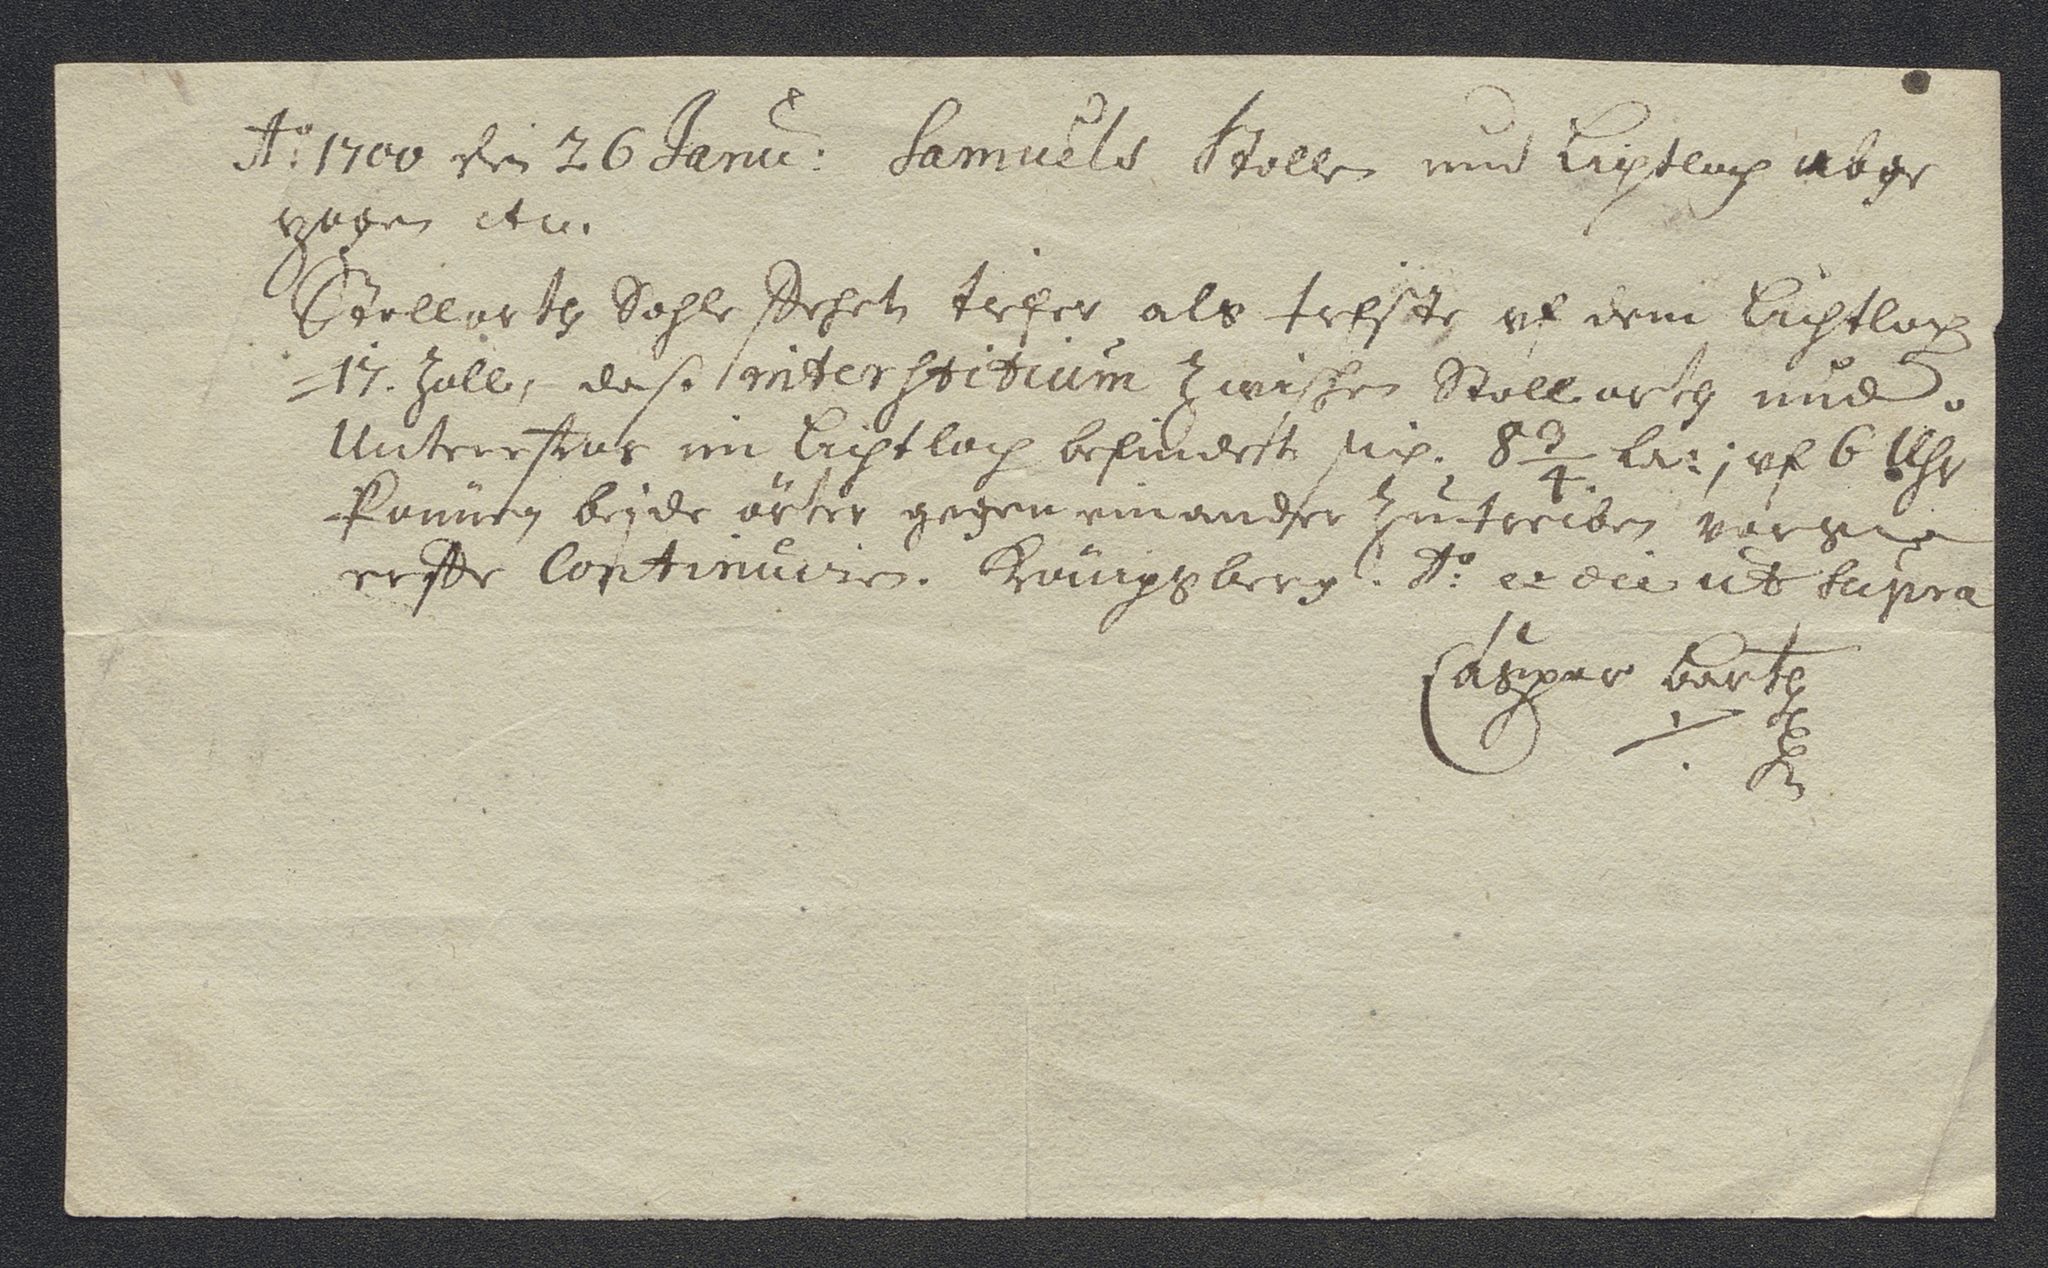 Ao: 1700 den 26 Janu: Samuels Stollen und Lichtloch abge
zogen etc.
Stollorts Sohle stehet tiefer als tiefste uf dem Lichtloch
=17. Zoll, das interstitium Zwischen Stollorts und
Untersten im Lichtloch befindet sich. 8 3/4 La:; uf 6 Uhr
können beyde örter gegen einander Zu treiben
erste Continuiren. Königsberg. Ao: et die ut supra
Caspar Barth